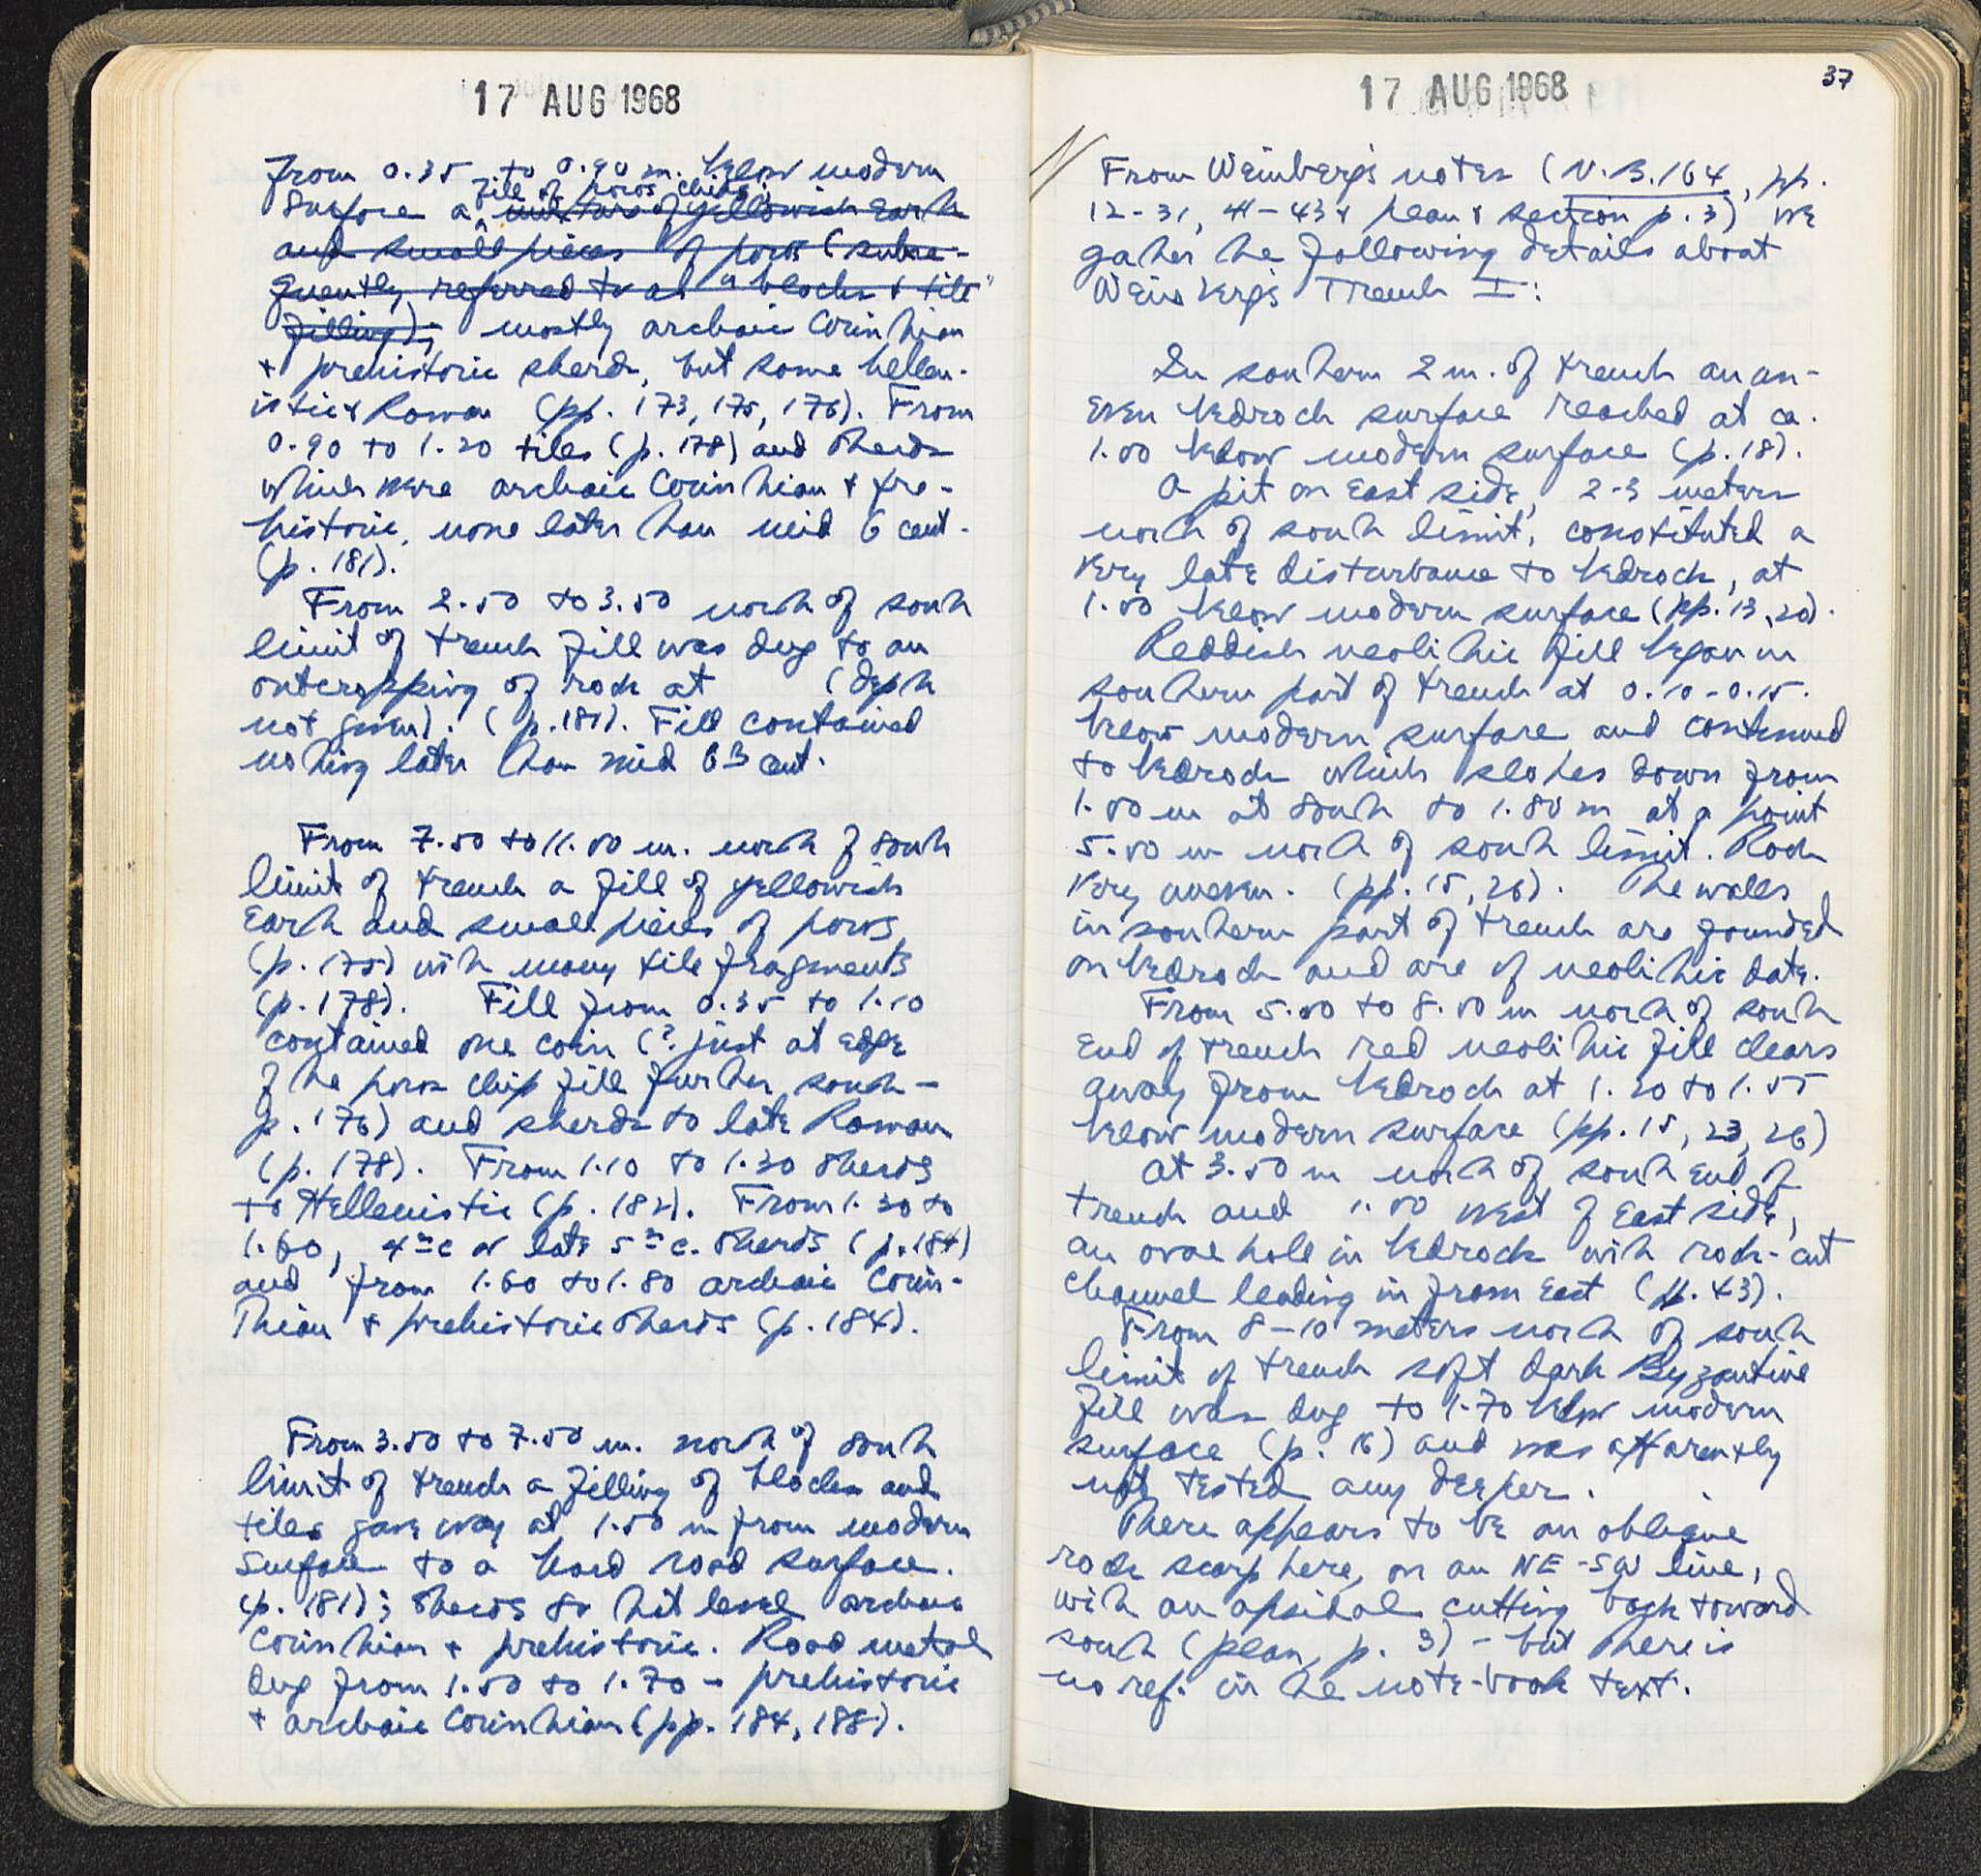 17 AUG 1968
From 0.35 to 0.90 m. below modern
fill of poros chips;
surface a mixture of yellowish earth
and small pieces of poros (subse-
quently referred to as "blocks & tile"
filling); mostly archaic Corinthian
+ prehistoric sherds, but some hellen-
istic & Roman (pp. 173, 175, 176). From
0.90 to 1.20 tiles (p. 178) and sherds
which were archaic Corinthian & pre-
historic, none later than mid 6 cent.
(p. 181).
From 2.50 to 3.50 north of south
limit of trench fill was dug to an
outcropping of rock at (depth
not given). (p. 181). Fill contained
nothing later than mid 6th cent.
From 7.50 to 11.00 m. north of south
limit of trench a fill of yellowish
earth and small pieces of poros
(p. 175) with many tile fragments
(p. 178). Fill from 0.35 to 1.10
contained one coin (? just at edge
of the poros chip fill further south –
p. 176) and sherds to late Roman
(p. 178). From 1.10 to 1.30 sherds
to Hellenistic (p. 182). From 1.30 to
1.60, 4th c or late 5th c. sherds (p. 184)
and from 1.60 to 1.80 archaic Corin-
thian & prehistoric sherds (p. 184).
From 3.50 to 7.50 m. north of south
limit of trench a filling of blocks and
tiles gave way at 1.50 m from modern
surface to a hard road surface.
(p. 181); sherds to hit level archaic
Corinthian + prehistoric. Road metal
dug from 1.50 to 1.70 – prehistoric
+ archaic Corinthian (pp. 184, 188).
17 AUG 1968
37
From Weinberg's notes (N.B. 164, pp.
12-31, 41-43 & plan & section p. 3) we
gather the following details about
Weinberg's Trench I:
In southern 2 m. of trench an un-
even bedrock surface reached at ca.
1.00 below modern surface (p. 18).
A pit on east side, 2-3 meters
north of south limit, constituted a
very late disturbance to bedrock, at
1.00 below modern surface (pp. 13, 20).
Reddish neolithic fill began in
southern part of trench at 0.10-0.15.
below modern surface and continued
to bedrock which slopes down from
1.00 m at south to 1.80 m at a point
5.00 m north of south limit. Rock
very uneven. (pp. 15, 26). The walls
in southern part of trench are founded
on bedrock and are of neolithic date.
From 5.00 to 8.00 m north of south
end of trench red neolithic fill clears
away from bedrock at 1.20 to 1.55
below modern surface (pp. 15, 23, 26)
At 3.50 m north of south end of
trench and 1.00 west of east side,
an oval hole in bedrock with rock-cut
channel leading in from east (p. 43).
From 8-10 meters north of south
limit of trench soft dark Byzantine
fill was dug to 1.70 below modern
surface (p. 16) and was apparently
not tested any deeper.
There appears to be an oblique
rock scarp here, on an NE-SW line,
with an apsidal cutting back toward
south (plan, p. 3) – but there is
no ref. in the note-book text.